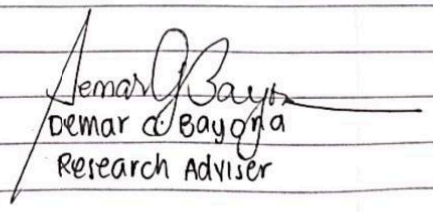 Demar G Bayo
Demar G. Bayona
Research Adviser